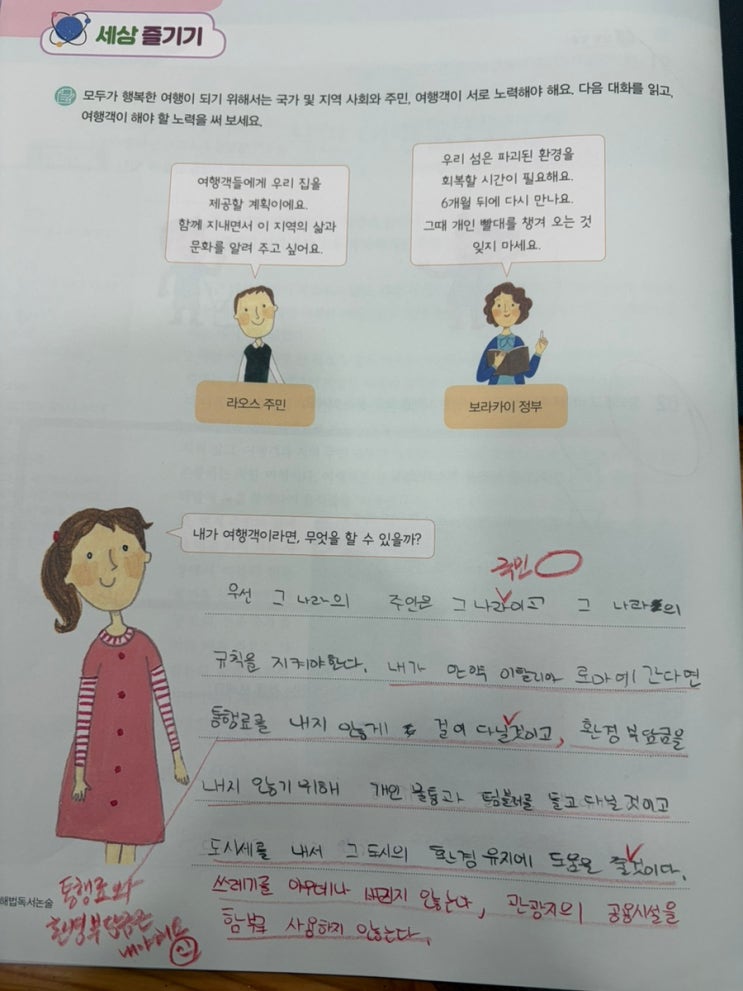 세상 즐기기
모두가 행복한 여행이 되기 위해서는 국가 및 지역 사회와 주민, 여행객이 서로 노력해야 해요. 다음 대화를 읽고,
여행객이 해야 할 노력을 써 보세요.
여행객들에게 우리 집을
제공할 계획이에요.
함께 지내면서 이 지역의 삶과
문화를 알려 주고 싶어요.
라오스 주민
우리 섬은 파괴된 환경을
회복할 시간이 필요해요.
6개월 뒤에 다시 만나요.
그때 개인 빨대를 챙겨 오는 것
잊지 마세요.
보라카이 정부
내가 여행객이라면, 무엇을 할 수 있을까?
국민
우선 그 나라의 주인은 그 나라이고 그 나라의
규칙을 지켜야한다. 내가 만약 이탈리아 로마에 간다면
통행료를 내지 않게 걸어 다닐것이고, 환경 부담금을
내지 않기 위해 개인 물통과 텀블러를 들고 다닐 것이고
도시세를 내서 그 도시의 환경 유지에 도움을 줄것이다.
쓰레기를 아무데나 버리지 않는다, 관광지의 공용시설을
함부로 사용하지 않는다.
통행료와
환경부담금은
내야해요
해법독서논술